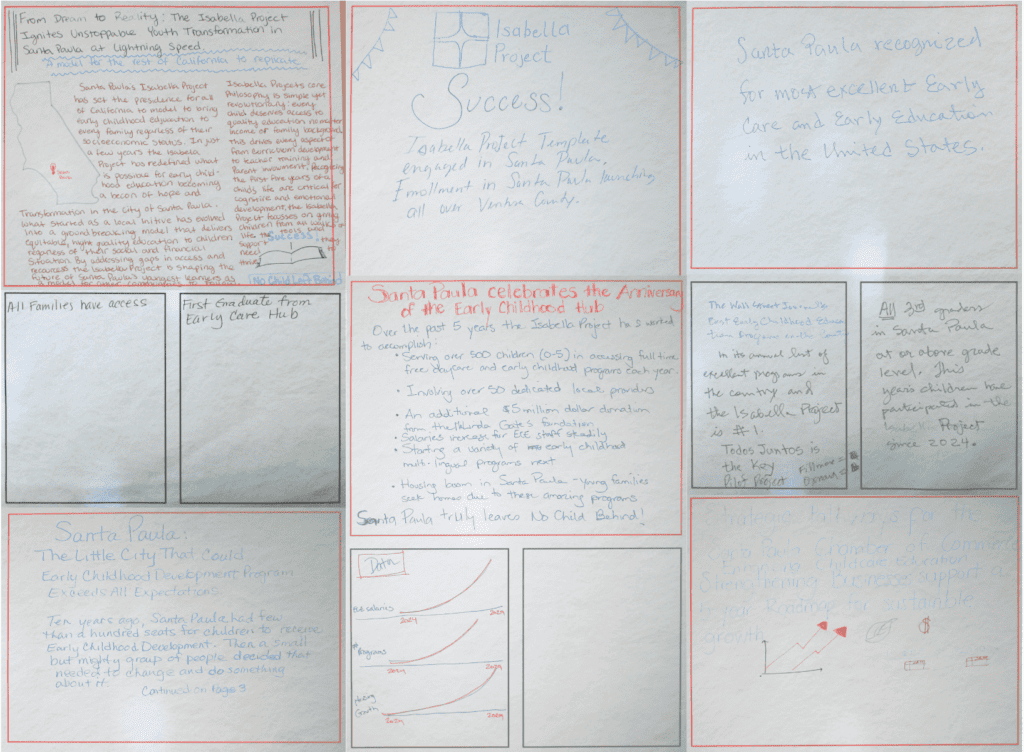 From Dream to Reality: The Isabella Project
Ignites Unstoppable Youth Transformation in
Santa Paula at Lightning Speed.
A model for the rest of California to replicate
Santa Paula's Isabella Project
has set the presidence for all
of California to model to bring
early childhood education to
every family regaless of their
socioeconomic status. In just
a few years the Isabella
Project has redefined what
is possible for early child-
hood education becoming
a becon of hope and
Transformation in the City of Santa Paula.
What started as a local initive has evolved
into a groundbreaking model that delivers
equitable, high quality education to children
regaless of their social and financial
Situation. By addressing gaps in access and
resources the Isabella Project is shaping the
future of Santa Paula's youngest learners as
Santa Paula
Isabella Projects core
Philosophy is simple yet
revolutionary: every
child deserves access to
quality education no matter
income or family background
this drives every aspect
from curriculum development
to teacher training and
Parent involvment. Recognizing
the first five years of a
child's life are critical for
cognitive and emotional
development, the Isabella
Project focuses on giving
children from all walks of
life the tools and
support they
need to
Success!
No Child Left Behind
Isabella
Project
Success!
Isabella Project Template
engaged in Santa Paula.
Enrollment in Santa Paula launching
all over Ventura County.
Santa Paula recognized
for most excellent Early
Care and Early Education
in the United States.
All Families have access
First Graduate from
Early Care Hub
Santa Paula celebrates the Anniversary
of the Early Childhood Hub
Over the past 5 years the Isabella Project has worked
to accomplish:
• Serving over 500 children (0-5) in accessing full time
free daycare and early childhood programs each year.
• Involving over 50 dedicated local providers
• An additional $5 million dollar donation
from the Melinda Gates foundation
• Salaries increase for ECE staff steadily
• Starting a variety of early childhood
multi-lingual programs next
• Housing boom in Santa Paula - young families
seek homes due to these amazing programs
Santa Paula truly leaves No Child Behind!
The Wall Street Journal's
Best Early Childhood Educa-
tion Programs in the
In its annual list of
excellent programs in
the country and
the Isabella Project
is #1.
Todos Juntos is
the Key
Pilot Project
Fillmore
Oxnard
All 3rd graders
in Santa Paula
at or above grade
level. This
year's children have
participated in the
Project
since 2024.
Santa Paula:
The Little City That Could
Early Childhood Development Program
Exceeds All Expectations
Ten years ago, Santa Paula had few
than a hundred seats for children to receive
Early Childhood Development. Then a small
but mighty group of people decided that
needed to change and do something
about it.
Continued on Page 3
Data
Salaries
2024
2029
# Programs
2024
2029
Growth
2024
2029
Strategic for the
Santa Paula of Commerce
childcare education
Strengthening Business support a
year Readings for sustainable
growth